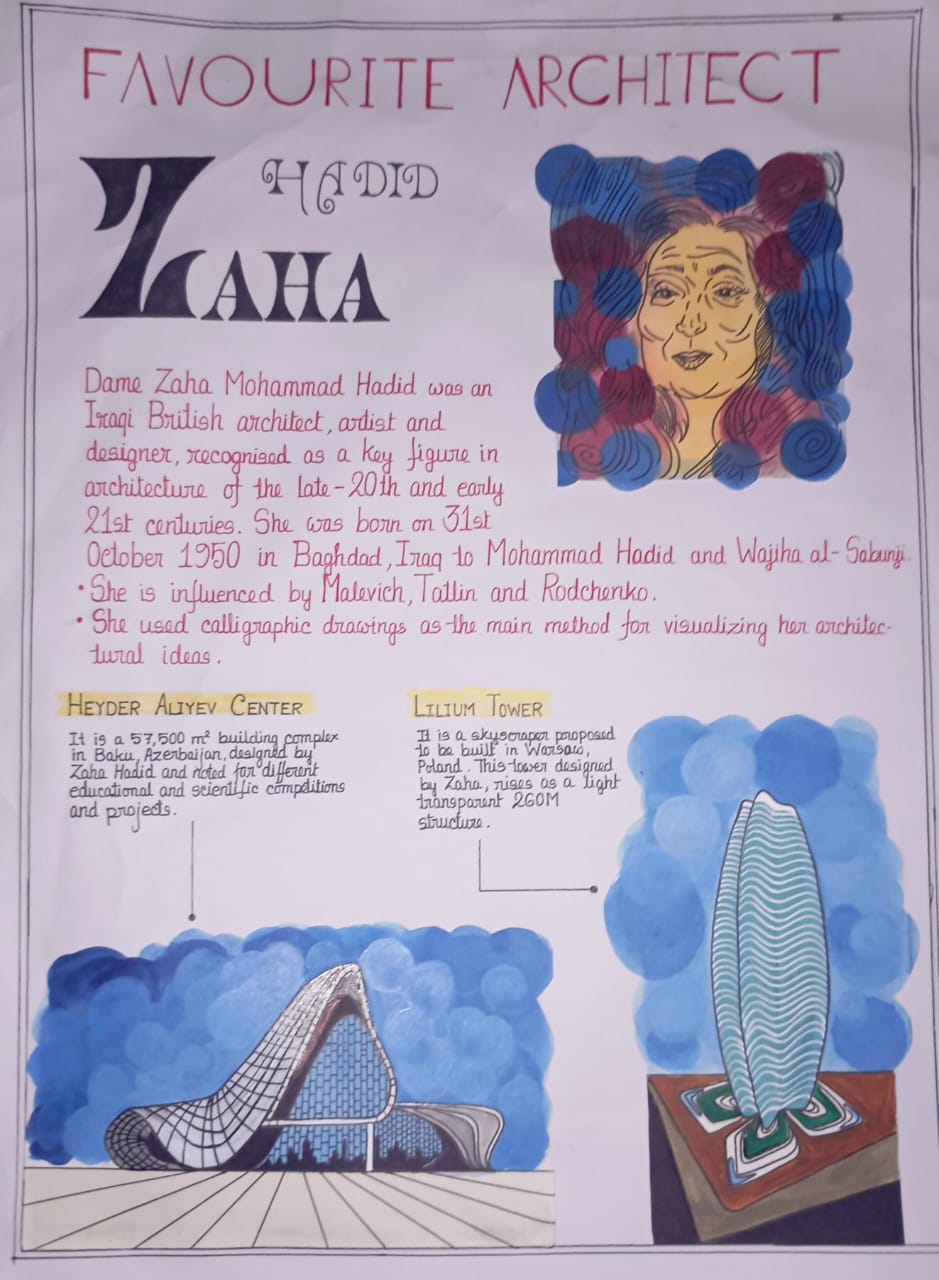 FAVOURITE ARCHITECT
HADID
ZAHA
Dame Zaha Mohammad Hadid was an
Iraqi British architect, artist and
designer, recognised as a key figure in
architecture of the late-20th and early
21st centuries. She was born on 31st
October 1950 in Baghdad, Iraq to Mohammad Hadid and Wajiha al-Sabunji.
• She is influenced by Malevich, Tatlin and Rodchenko.
• She used calligraphic drawings as the main method for visualizing her architec-
tural ideas.
HEYDER ALIYEV CENTER
It is a 57,500 m² building complex
in Baku, Azerbaijan, designed by
Zaha Hadid and noted for different
educational and scientific comptitions
and projects.
LILIUM TOWER
It is a skyscraper proposed
to be built in Warsaw,
Poland. This tower designed
by Zaha, rises as a light
transparent 260M
structure.